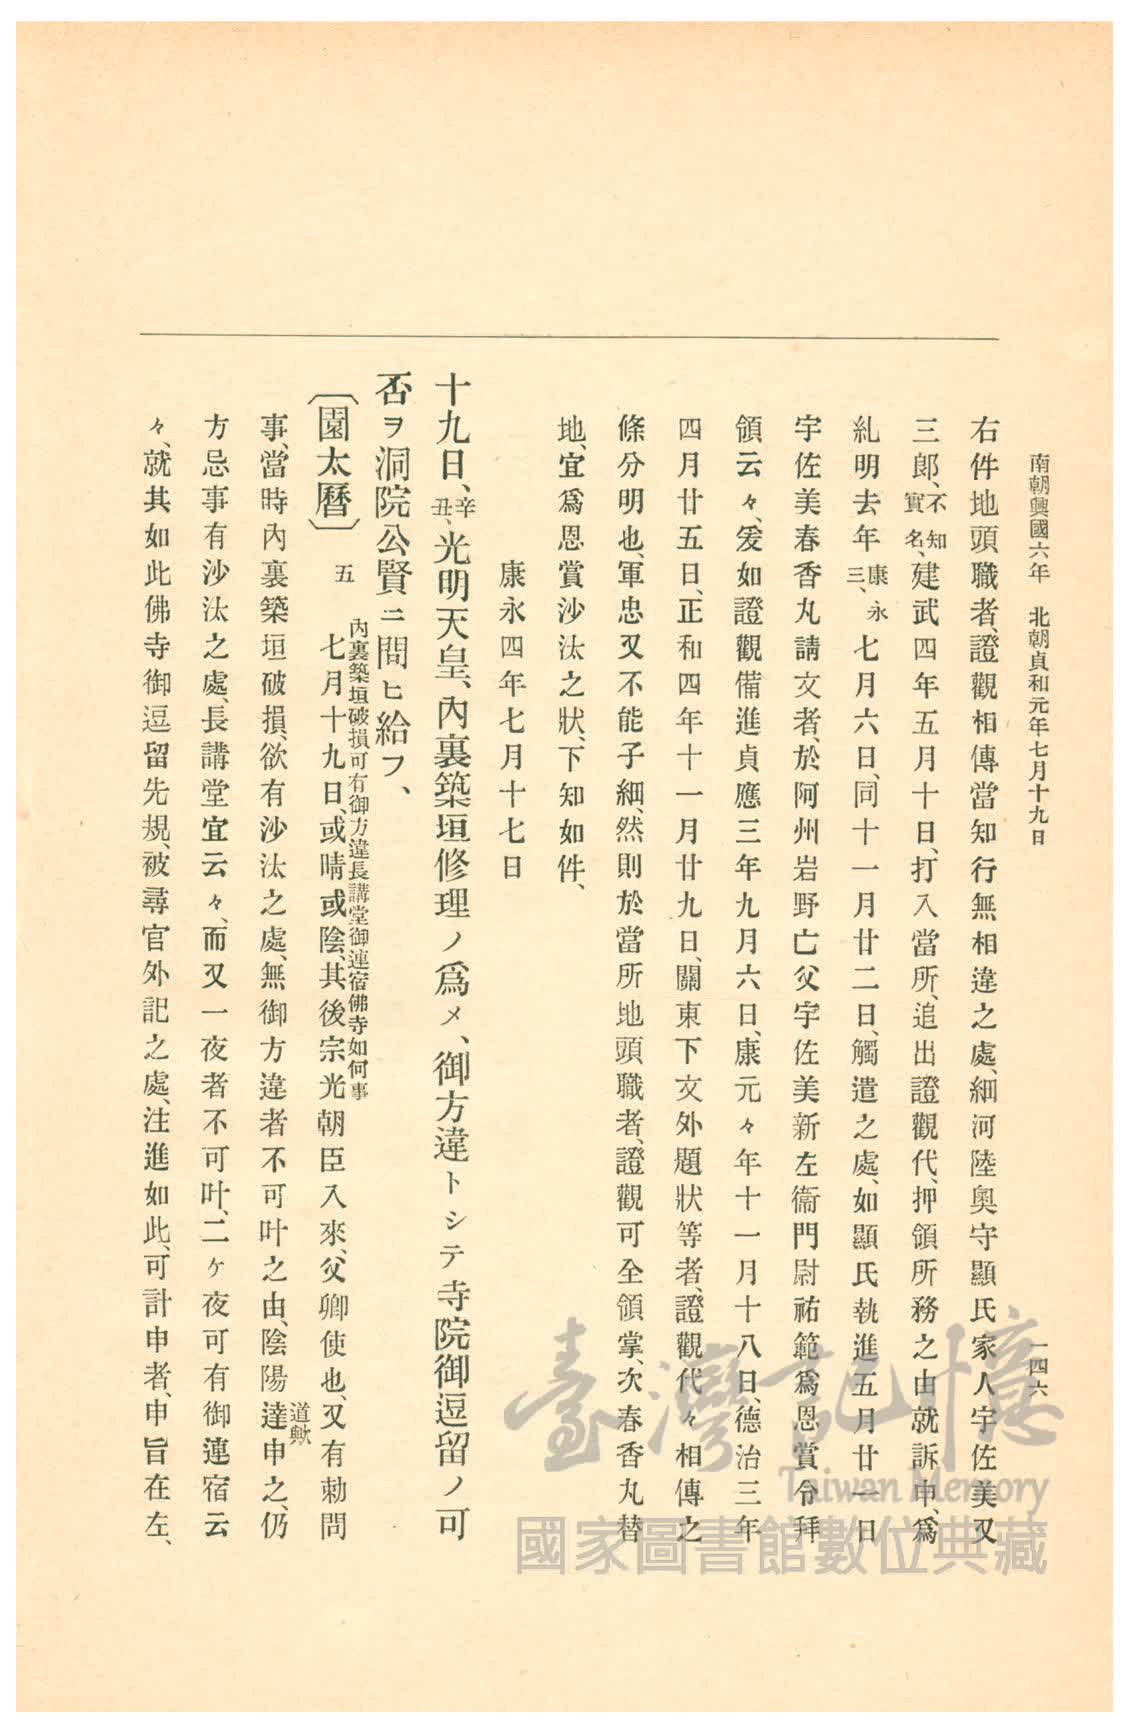 南朝興國六年　北朝貞和元年七月十九日
一四六
右件地頭職者、證觀相傳當知行無相違之處、細河陸奧守顯氏家人宇佐美又
三郎、不知實名、建武四年五月十日、打入當所、追出證觀代、押領所務之由就訴申、爲
糺明去年康永三、七月六日、同十一月廿二日、觸遣之處、如顯氏執進五月廿一日
宇佐美春香丸請文者、於阿州岩野亡父宇佐美新左衞門尉祐範爲恩賞令拜
領云々、爰如證觀備進貞應三年九月六日、康元々年十一月十八日、德治三年
四月廿五日、正和四年十一月廿九日、關東下文外題狀等者、證觀代々相傳之
條分明也、軍忠又不能子細、然則於當所地頭職者、證觀可全領掌、次春香丸替
地、宜爲恩賞沙汰之狀、下知如件、
康永四年七月十七日
十九日、辛丑、光明天皇、內裏築垣修理ノ爲メ、御方違トシテ寺院御逗留ノ可
否ヲ洞院公賢ニ問ヒ給フ、
〔園太曆〕五
內裏築垣破損可有御方違長講堂御連宿佛寺如何事
七月十九日、或晴或陰、其後宗光朝臣入來、父卿使也、又有勅問
事、當時內裏築垣破損、欲有沙汰之處、無御方違者不可叶之由、陰陽達申之、仍
道歟
方忌事有沙汰之處、長講堂宜云々、而又一夜者不可叶、二ケ夜可有御連宿云
々、就其如此佛寺御逗留先規、被尋官外記之處、注進如此、可計申者、申旨在左、
臺灣記憶
Taiwan Memory
國家圖書館數位典藏